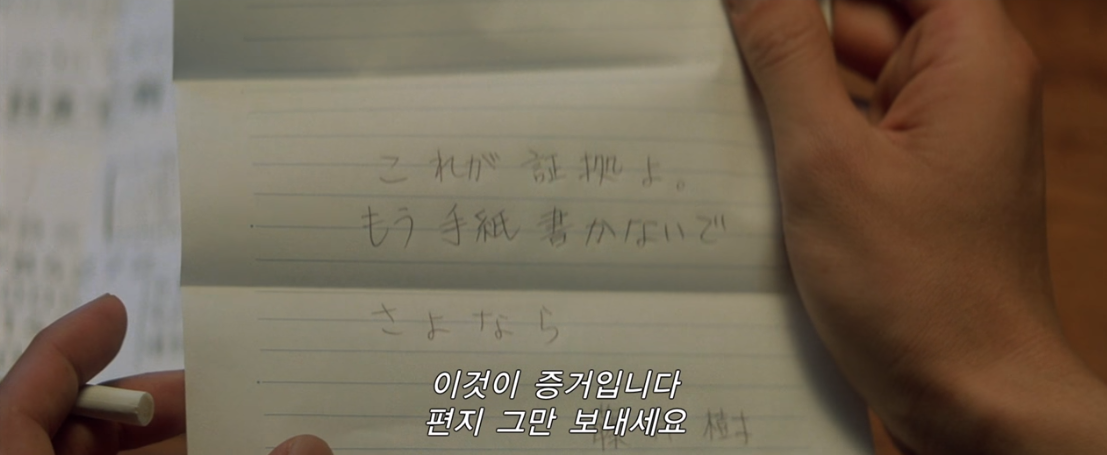 これが証拠よ。
もう手紙書かないで
さよなら
이것이 증거입니다
편지 그만 보내세요
樹